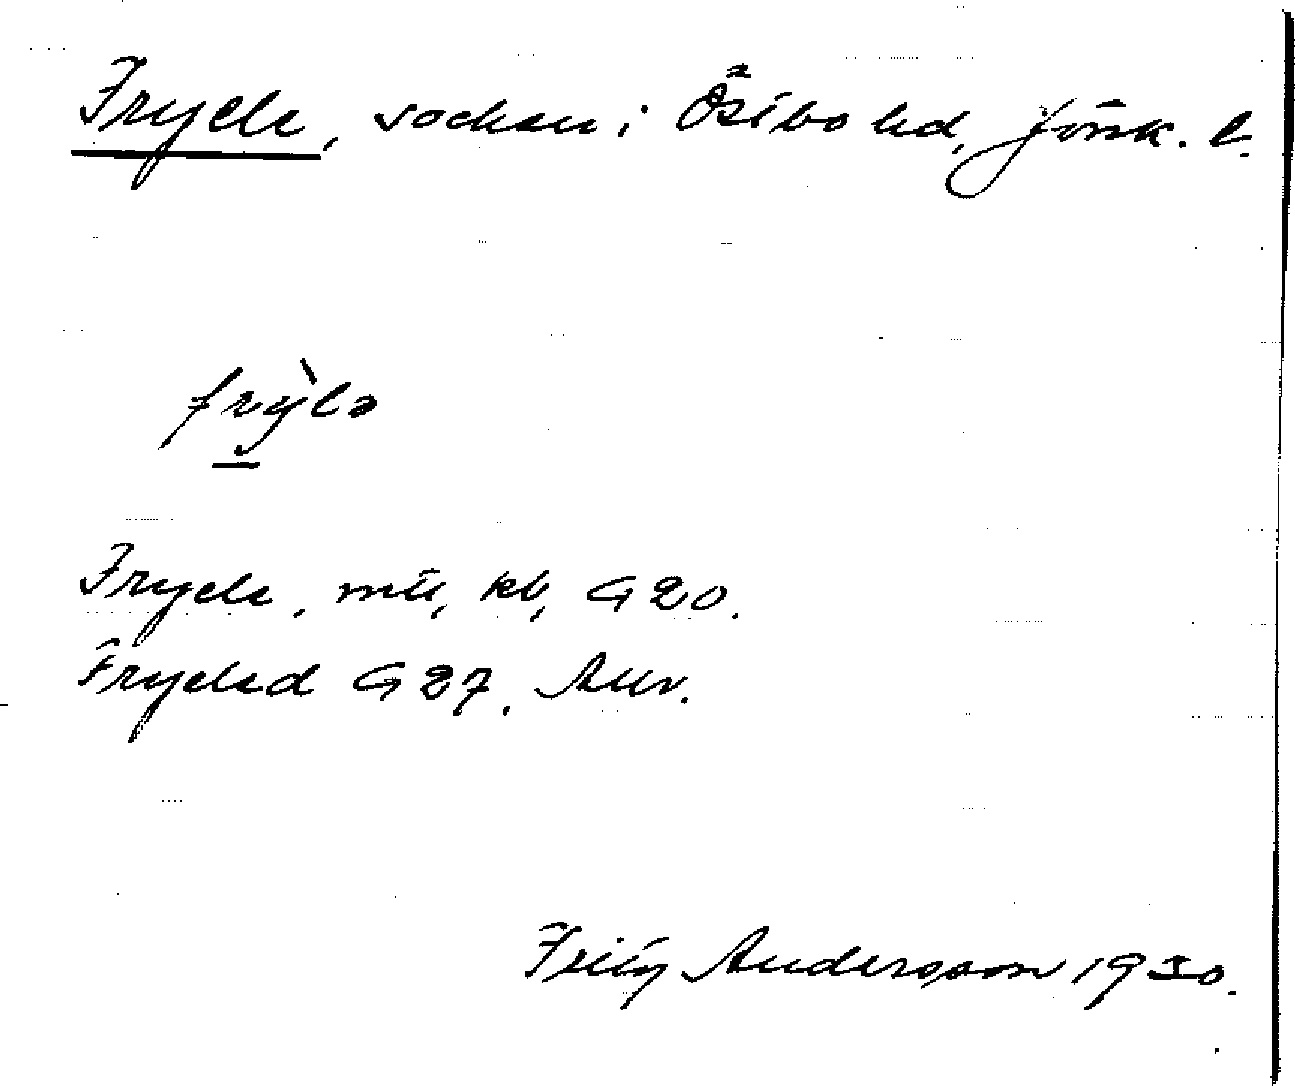 Fryele, socken i Östbo hd, Jönk. l.
fry̆̀lə
Fryele, mtl, kb, G 20.
Fryeled G 27. Anv.
Fritz Andersson 1930.